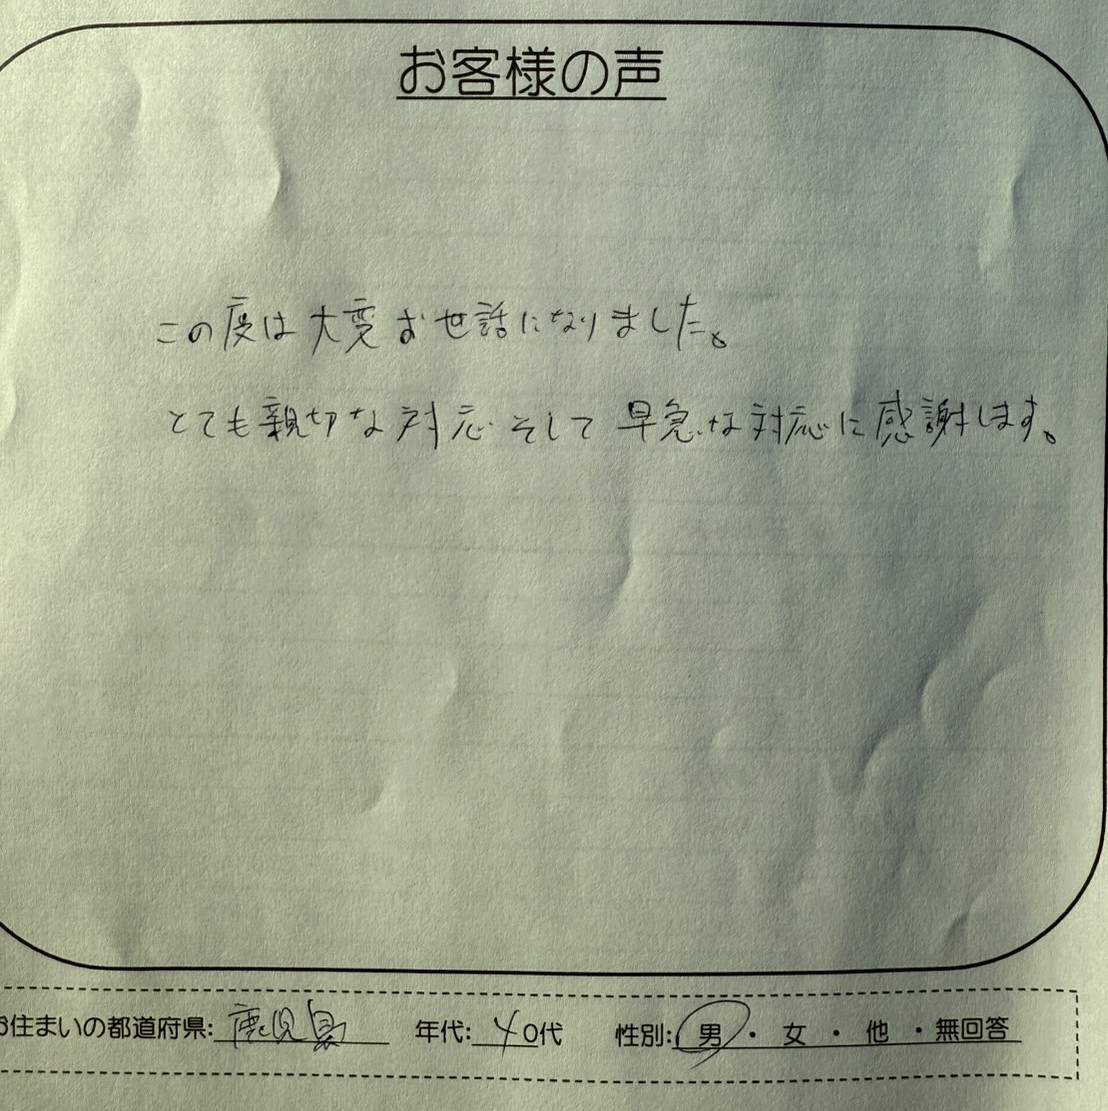 お客様の声
この度は大変お世話になりました。
とても親切な対応そして早急な対応に感謝します。
お住まいの都道府県:鹿児島 年代:40代 性別:男・女・他・無回答